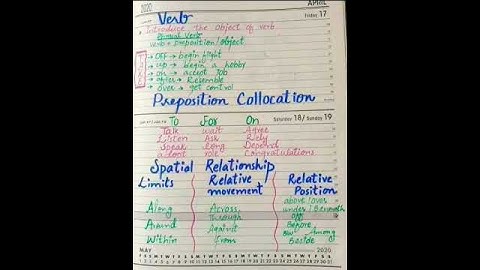 2020
APRIL
Friday 17
Verb
Introduce the object of verb
Phrasal Verb
verb + preposition / object
→ OFF → begin flight
→ up → begin a hobby
→ on → accept job
→ after → Resemble
→ over → get control
Preposition Collocation
Saturday 18 / Sunday 19
To For On
Talk wait Agree
Listen Ask Rely
Speak long Depend
role Congratulations
Spatial Relationship
Limits Relative movement Relative Position
Along Across above/over
Through under / Beneath
off
Around Against Before
Among
Within From Beside
MAY 2020